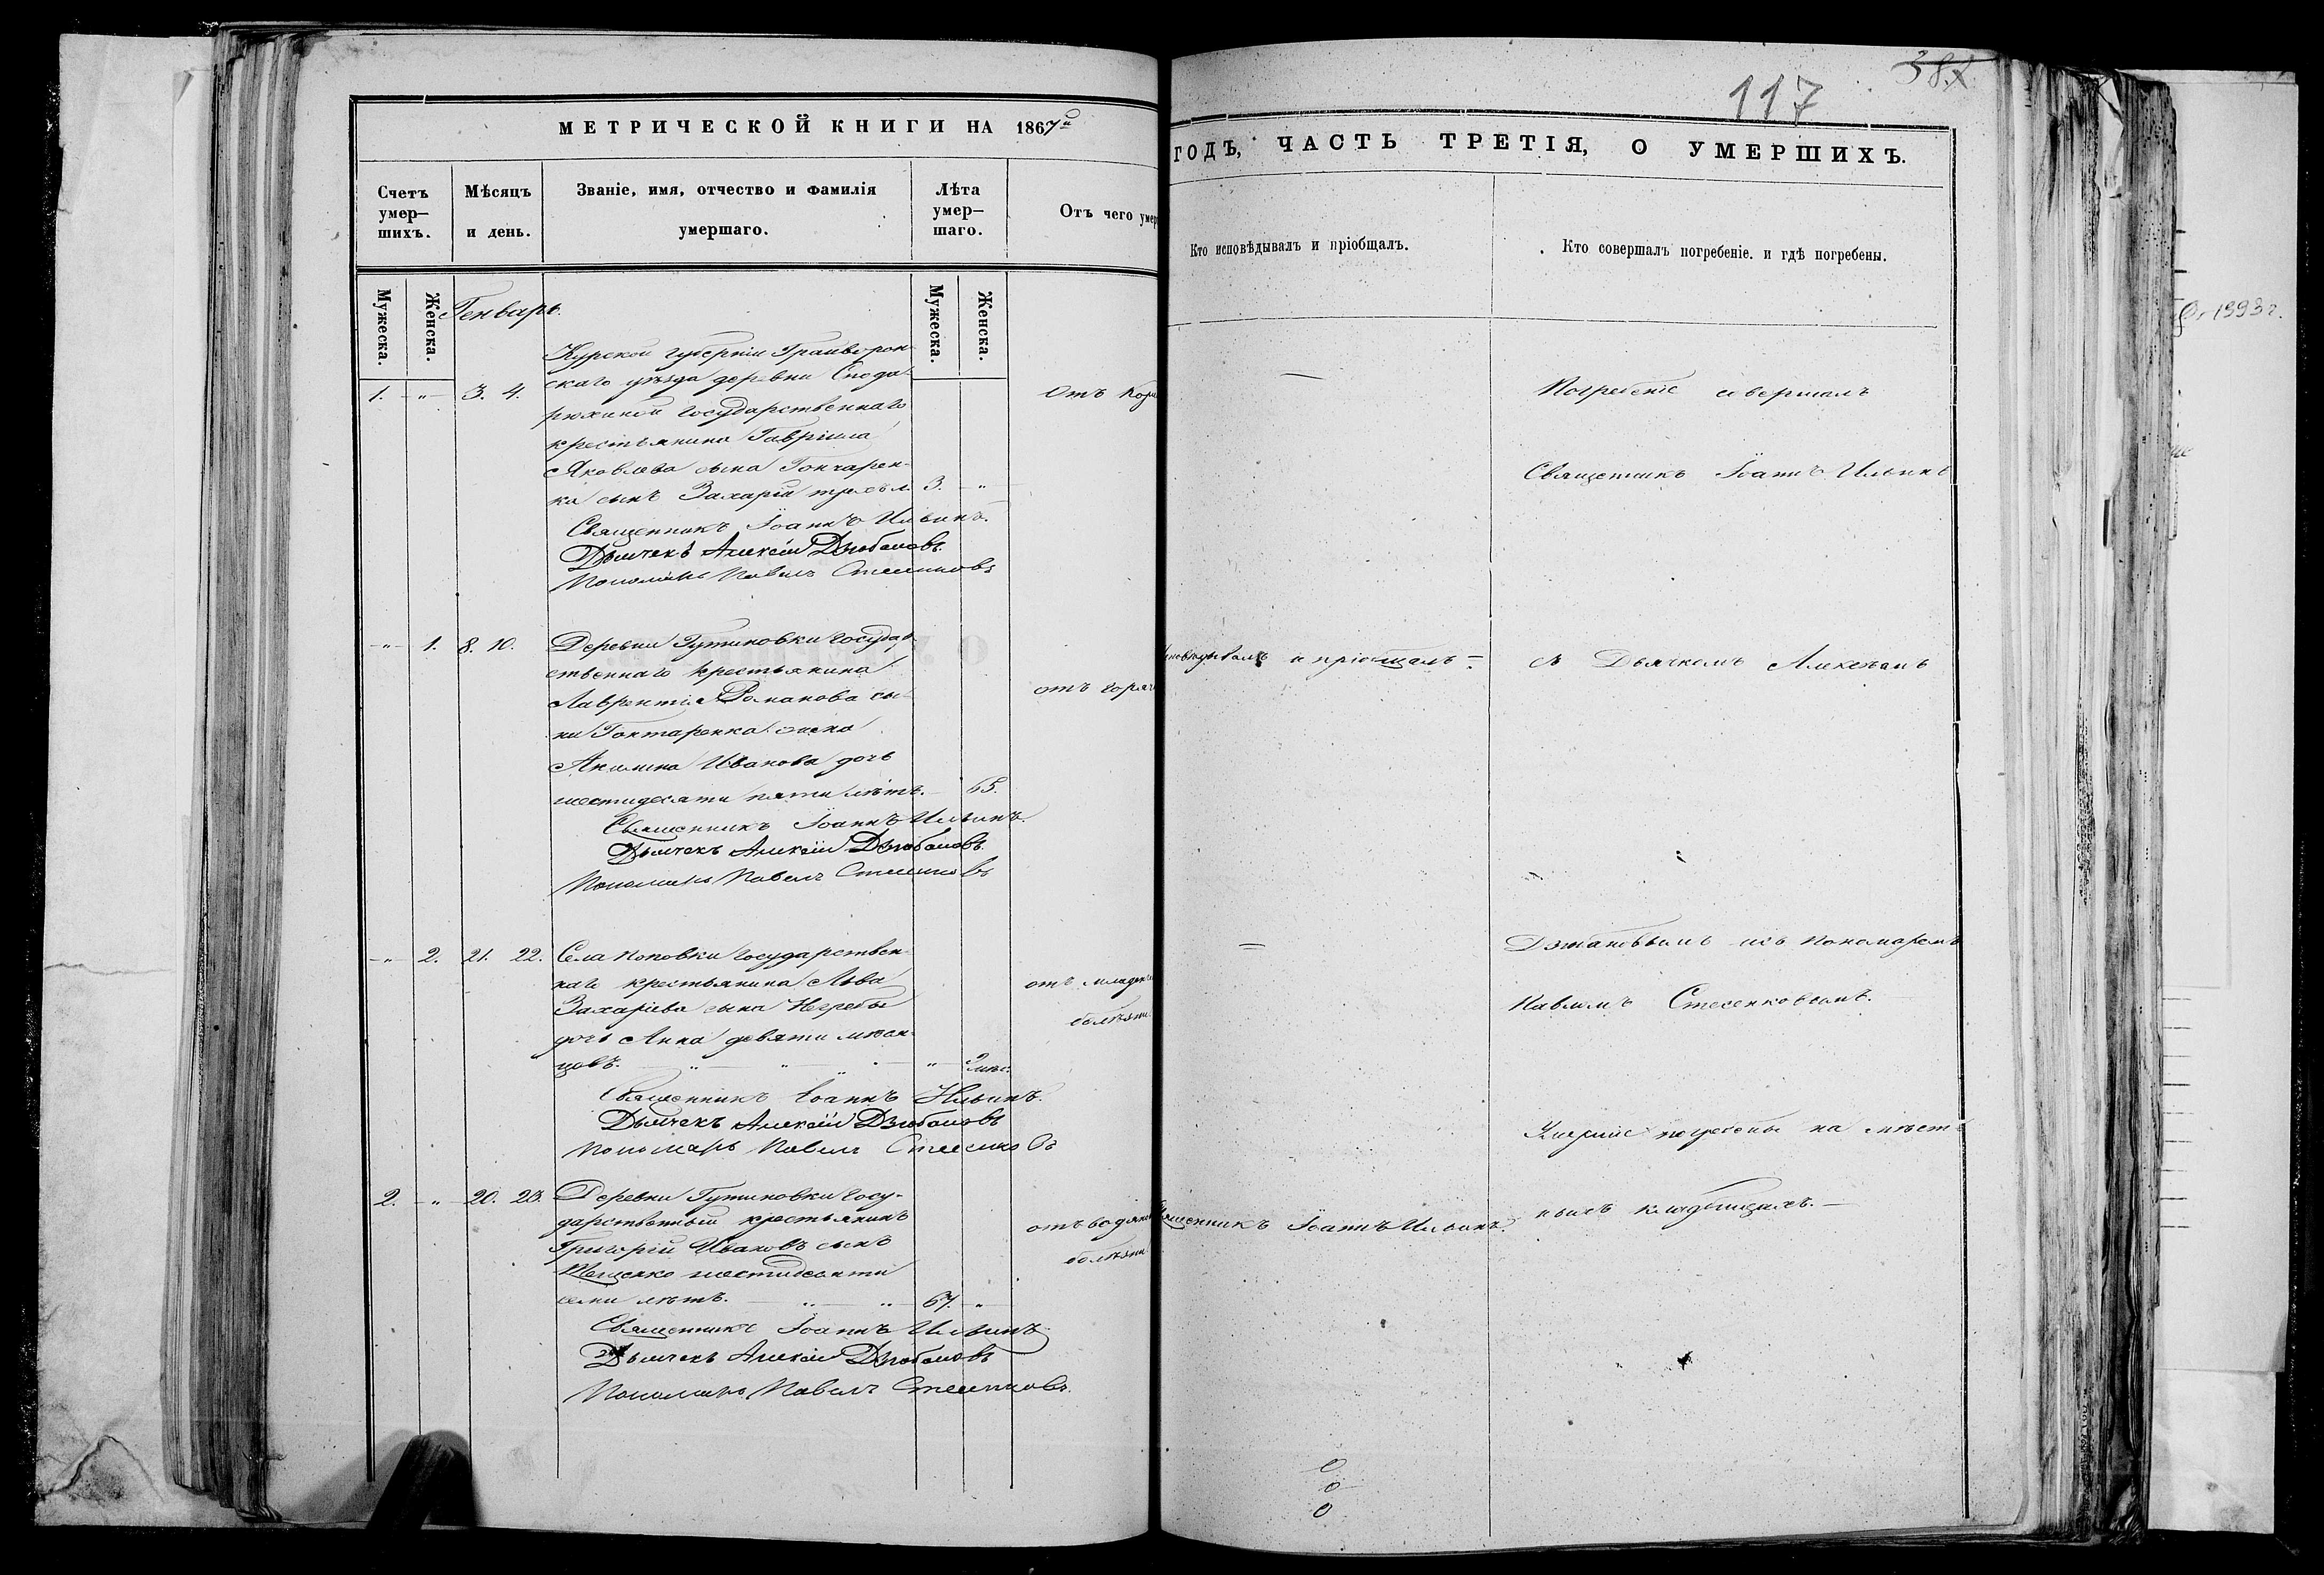 117
МЕТРИЧЕСКОЙ КНИГИ НА 1867й
ГОДЪ, ЧАСТЬ ТРЕТІЯ, О УМЕРШИХЪ.
Счетъ умер-шихъ.
Мѣсяцъ и день.
Званіе, имя, отчество и фамилія умершаго.
Лѣта умер-шаго.
Отъ чего умер
Кто исповѣдывалъ и пріобщалъ.
Кто совершалъ погребеніе. и гдѣ погребены.
Мужеска.
Женска.
Мужеска.
Женска.
Генварь.
Курской губерніи Грайворон-
1. " 3. 4. скаго уѣзда деревни Спода-
рюхиной государственнаго
крестьянина Гавріила
Яковлева сына Гончарен-
ка сынъ Захарій трехъ л. 3. "
Отъ Кори
—
Священникъ Іоаннъ Ильинъ.
Дьячекъ Алексѣй Дзюбановъ
Пономарь Павелъ
" 1. 8. 10. Деревни Гутиновки государ-
ственнаго крестьянина
Лаврентія Романова сы-
на Гонтаренка жена
Акилина Иванова дочь
шестидесяти пяти лѣтъ. 65.
отъ горяч
исповѣдывалъ и пріобщалъ =
Священникъ Іоаннъ Ильинъ.
Дьячекъ Алексѣй Дзюбановъ
Пономарь Павелъ
" 2. 21. 22. Села Поповки государствен-
наго крестьянина Льва
Захаріева сына Негребы
дочь Анна девяти мѣся-
цовъ. " 9 мѣс.
отъ младен
болѣзни
=
Священникъ Іоаннъ Ильинъ.
Дьячекъ Алексѣй Дзюбановъ
Пономарь Павелъ
2. " 20. 23. Деревни Гутиновки госу-
дарственный крестьянинъ
Григорій Ивановъ сынъ
шестидесяти
семи лѣтъ. 67. "
отъ водяной
болѣзни
Священникъ Іоаннъ Ильинъ.
Священникъ Іоаннъ Ильинъ
Дьячекъ Алексѣй Дзюбановъ
Пономарь Павелъ
Погребеніе совершалъ
Священникъ Іоаннъ Ильинъ
съ Дьячкомъ Алексѣемъ
Дзюбановымъ и съ Пономаремъ
Павломъ Стесенковымъ.
Умершіе погребены на мѣст-
ныхъ кладбищахъ. —
1993 г.